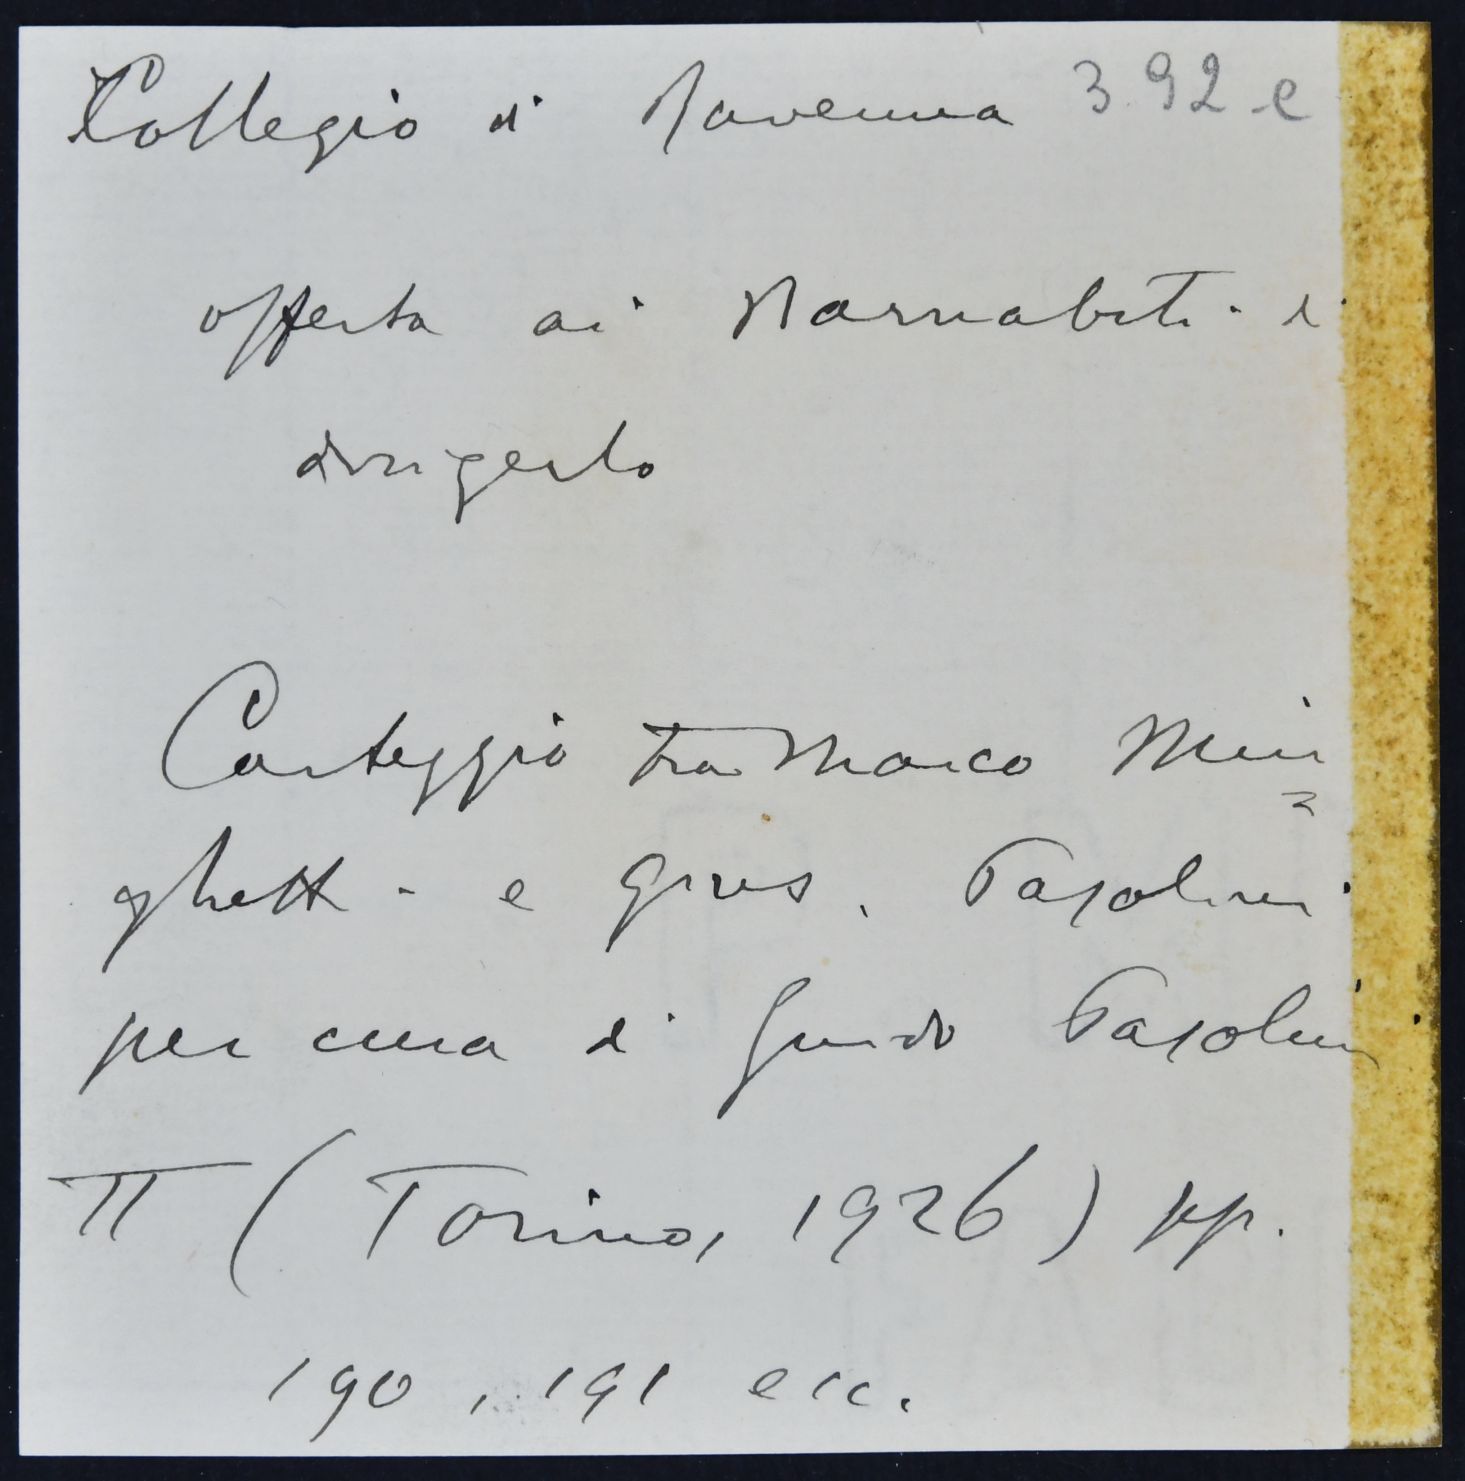 Collegio di Ravenna 392 e
offerta ai Barnabiti di
dirigerlo
Carteggio tra Marco Min=
ghetti e Gius. Pasolini
per cura di Guido Pasolini
II (Torino, 1926) pp.
190, 191 ecc.